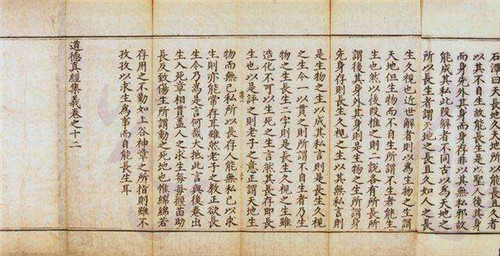 石潭曰天長地久天地所以能長且久者
以其不自生故能長生是以聖人後其身
而身先外其身而身存非以其無私邪故
能成其私此段解者不同古人爲天地之
所以長生者謂天地之長且久如人之長
生久視也近世解者則以爲生物之生謂
天地但生物而不自生所謂不生者能生
生也然以後段推之則二說各有所長所
謂後其身外其身則是生物之生所謂身
先身存則長生久視之生以其無私言則
是生物之生以成其私言則是長生久視
之生今一以貫之則不自生者乃生
物之生長生二字則是長生久視之生雖
造化不可以生死之生言然其長存即長
生也以是評之則老子之意正謂天地生
物而無己私所以長存人能無私己以求
生則亦能常存耳雖然老子之教正欲長
生今乃爲是言何哉大抵此言與後卷出
生入死章相貫蓋人之求生每每揠苗助
長反致傷生所謂動之死地也惟綿綿若
存用之不勤如上谷神章之所指則雖不
孜孜以求生爲事而自能長生耳
道德真經集義卷之十二